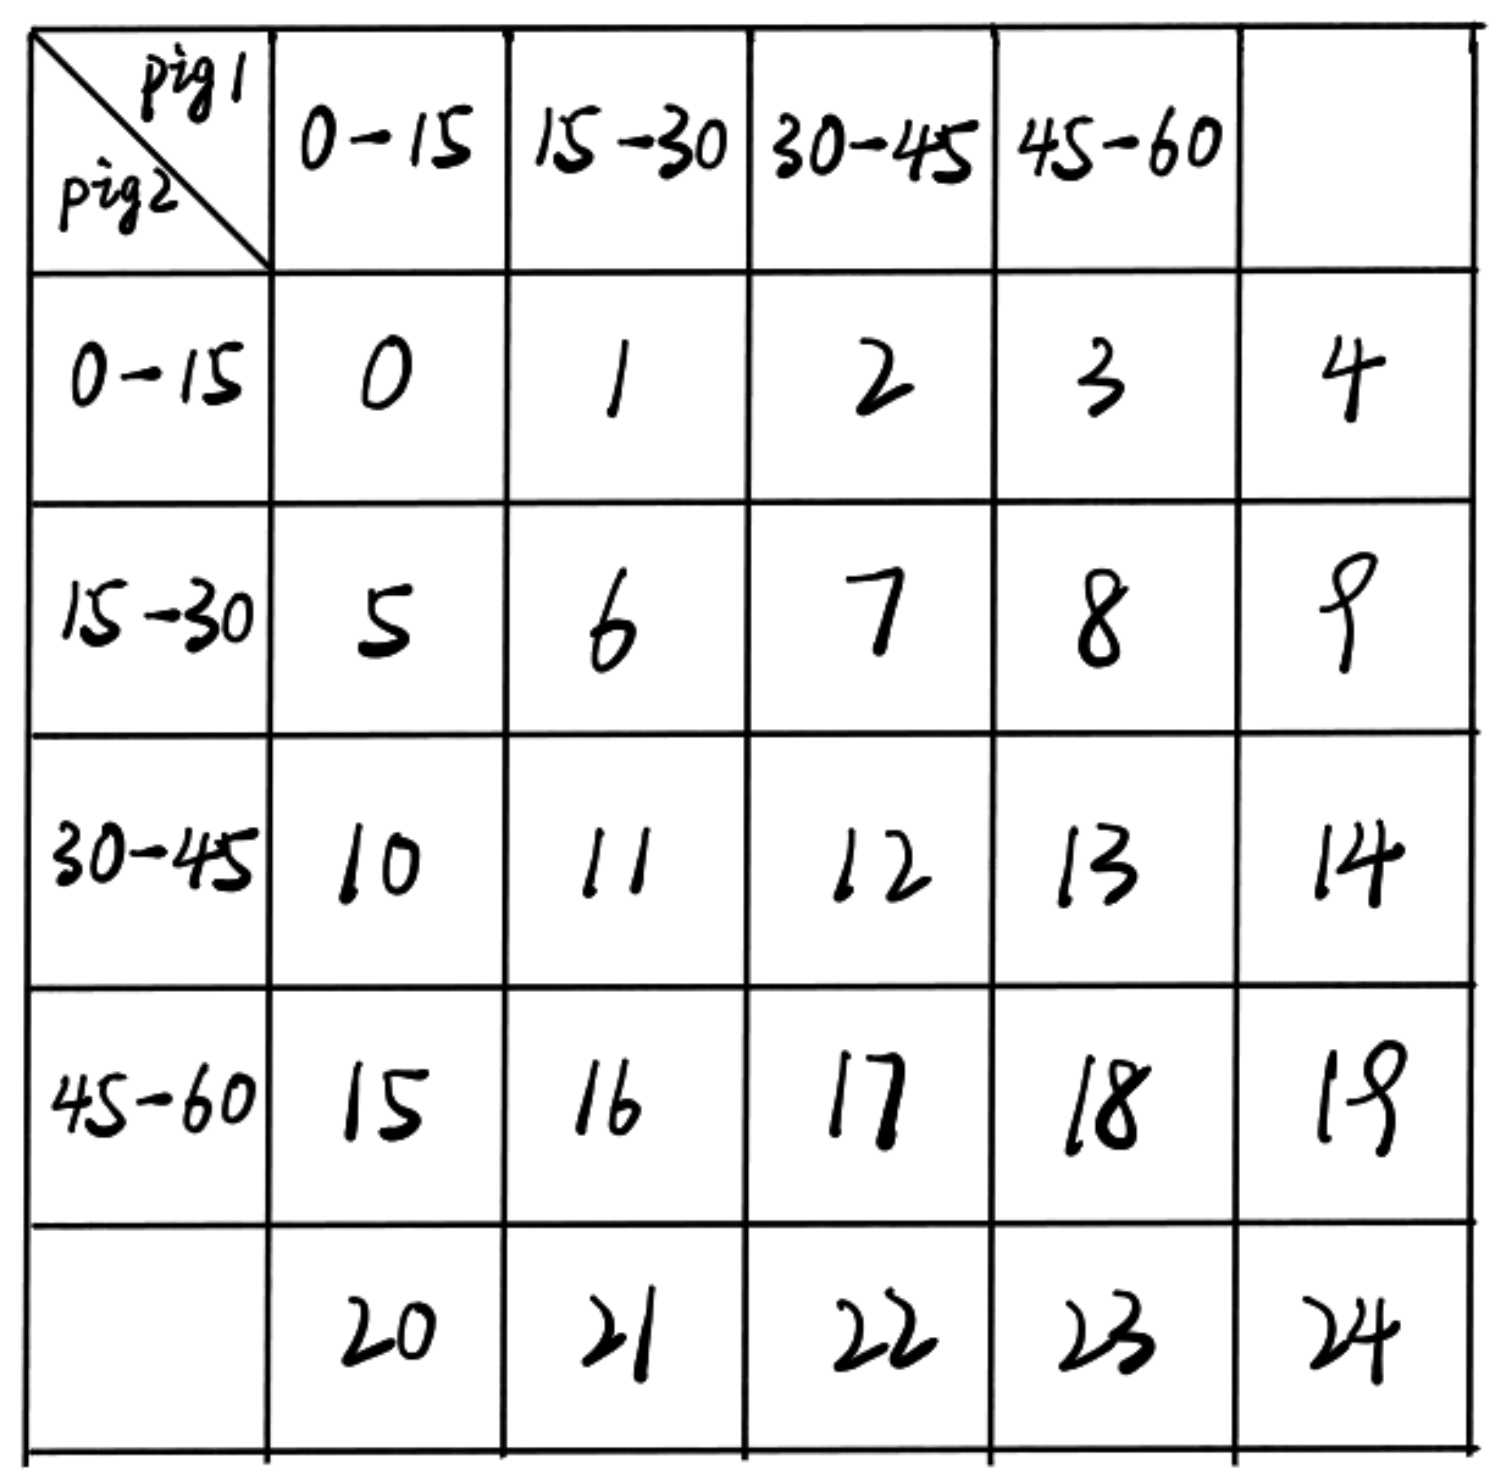 pig1
pig2
0-15 15-30 30-45 45-60
0-15 0 1 2 3 4
15-30 5 6 7 8 9
30-45 10 11 12 13 14
45-60 15 16 17 18 19
20 21 22 23 24